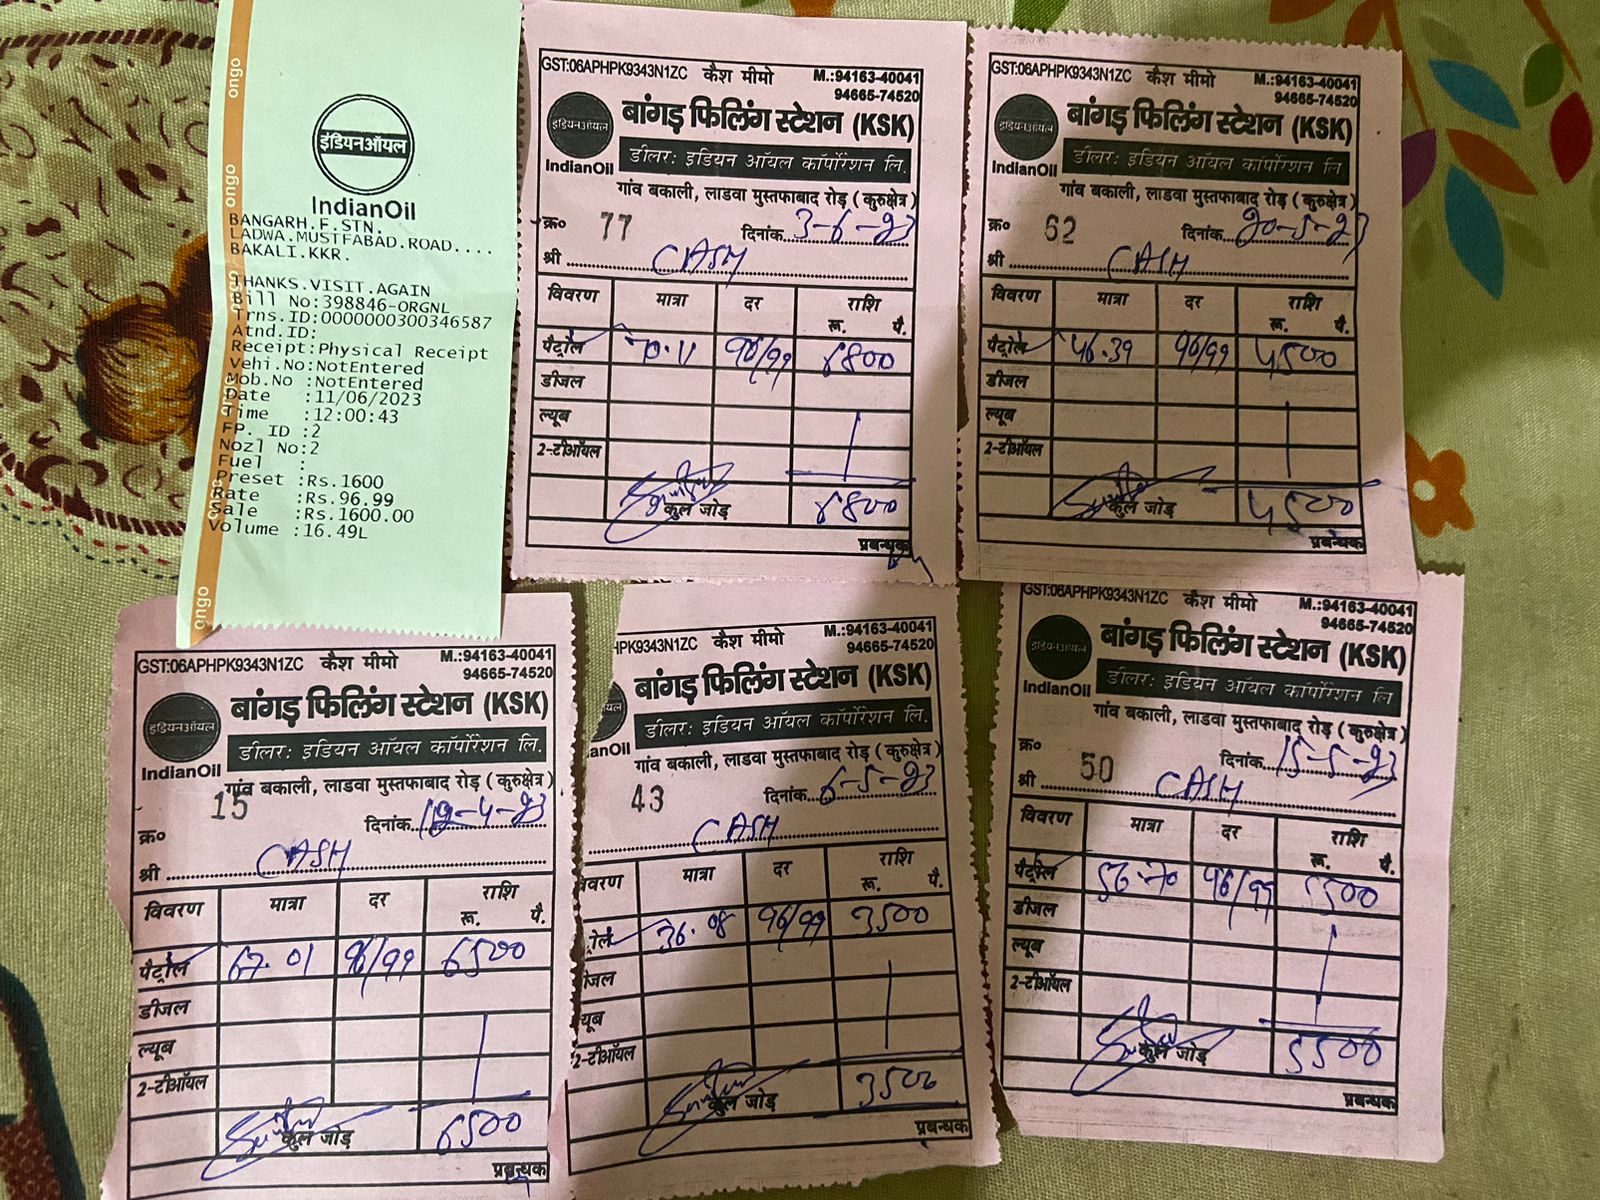 ongo
ongo
ongo
ongo
इंडियनऑयल
IndianOil
BANGARH.F.STN.
LADWA.MUSTFABAD.ROAD....
BAKALI.KKR.
THANKS.VISIT.AGAIN
Bill No:398846-ORGNL
Trns.ID:0000000300346587
Atnd.ID:
Receipt:Physical Receipt
Vehi.No:NotEntered
Mob.No :NotEntered
Date :11/06/2023
Time :12:00:43
FP. ID :2
Nozl No:2
Fuel :
Preset :Rs.1600
Rate :Rs.96.99
Sale :Rs.1600.00
Volume :16.49L
GST:06APHPK9343N1ZC कैश मीमो M.:94163-40041
94665-74520
इंडियनऑयल बांगड़ फिलिंग स्टेशन (KSK)
IndianOil डीलर: इंडियन ऑयल कॉर्पोरेशन लि.
गांव बकाली, लाडवा मुस्तफाबाद रोड़ (कुरुक्षेत्र)
क्र० 77 दिनांक 3-6-23
श्री CASH
विवरण मात्रा दर राशि
रू. पै.
पैट्रोल 70.11 96/99 6800
डीजल
ल्यूब
2-टीऑयल
कुल जोड़ 6800
प्रबन्धक
GST:06APHPK9343N1ZC कैश मीमो M.:94163-40041
94665-74520
इंडियनऑयल बांगड़ फिलिंग स्टेशन (KSK)
IndianOil डीलर: इंडियन ऑयल कॉर्पोरेशन लि
गांव बकाली, लाडवा मुस्तफाबाद रोड़ (कुरुक्षेत्र)
क्र० 62 दिनांक 20-5-23
श्री CASH
विवरण मात्रा दर राशि
रू. पै.
पैट्रोल 46.39 96/99 4500
डीजल
ल्यूब
2-टीऑयल
कुल जोड़ 4500
प्रबन्धक
GST:06APHPK9343N1ZC कैश मीमो M.:94163-40041
94665-74520
इंडियनऑयल बांगड़ फिलिंग स्टेशन (KSK)
IndianOil डीलर: इंडियन ऑयल कॉर्पोरेशन लि.
गांव बकाली, लाडवा मुस्तफाबाद रोड़ (कुरुक्षेत्र)
क्र० 15 दिनांक -4-23
श्री CASH
विवरण मात्रा दर राशि
रू. पै.
पैट्रोल 67.01 96/99 6500
डीजल
ल्यूब
2-टीऑयल
कुल जोड़ 6500
प्रबन्धक
HPK9343N1ZC कैश मीमो M.:94163-40041
94665-74520
यल बांगड़ फिलिंग स्टेशन (KSK)
anOil डीलर: इंडियन ऑयल कॉर्पोरेशन लि.
गांव बकाली, लाडवा मुस्तफाबाद रोड़ (कुरुक्षेत्र)
43 दिनांक 6-5-23
CASH
विवरण मात्रा दर राशि
रू. पै.
ट्रोल 36.08 96/99 3500
ीजल
्यूब
2-टीऑयल
कुल जोड़ 3500
प्रबन्धक
GST:06APHPK9343N1ZC कैश मीमो M.:94163-40041
94665-74520
इंडियनऑयल बांगड़ फिलिंग स्टेशन (KSK)
IndianOil डीलर: इंडियन ऑयल कॉर्पोरेशन लि
गांव बकाली, लाडवा मुस्तफाबाद रोड़ (कुरुक्षेत्र)
क्र० 50 दिनांक 15-5-23
श्री CASH
विवरण मात्रा दर राशि
रू. पै.
पैट्रोल 56.70 96/99 5500
डीजल
ल्यूब
2-टीऑयल
कुल जोड़ 5500
प्रबन्धक